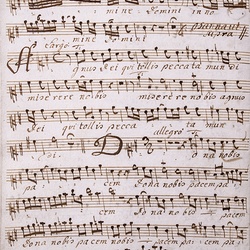 mine Domini in no
mine Domini
Largo
Agnus Dei qui tollis peccata mun di
miserere nobis miserere nobis agnus
Dei qui tollis pecca ta mun
di. allegro
Dona nobis
pa cem dona nobis pacem pa
cem Dona no bis pa
cem dona nobis pacem pacem